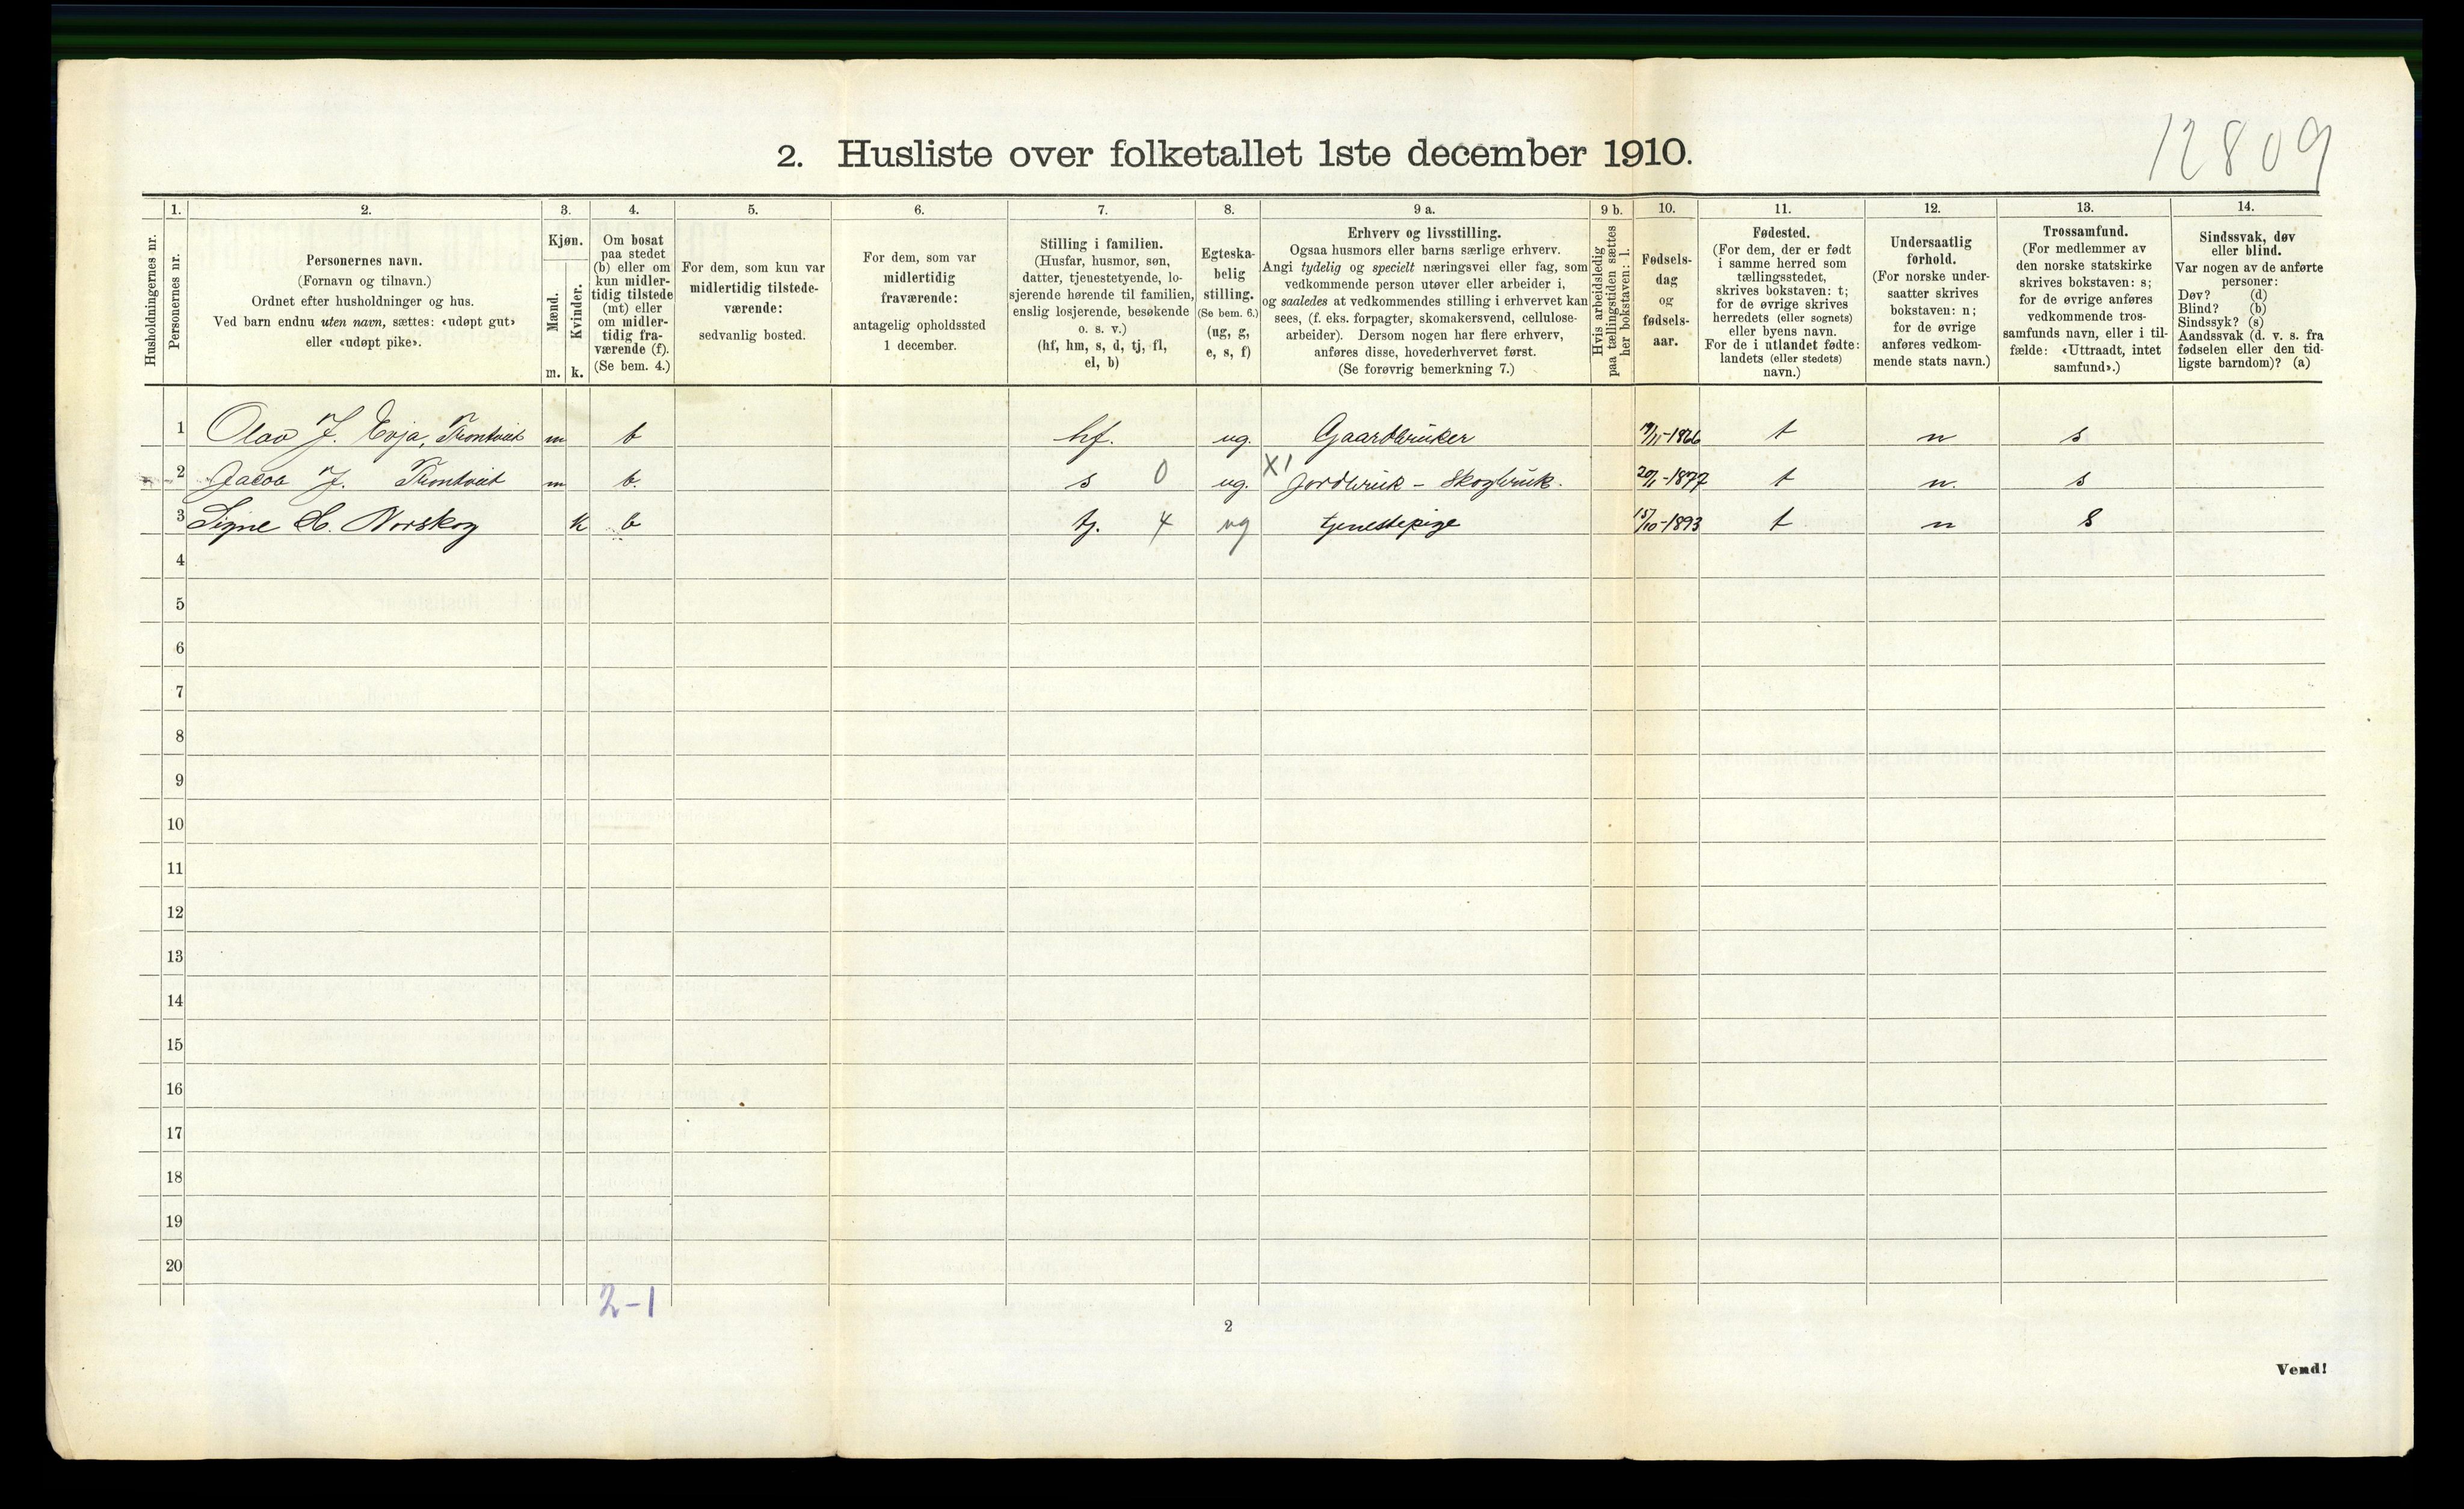 12809
2. Husliste over folketallet 1ste december 1910.
Husholdningernes nr.
1.
Personernes nr.
2.
Personernes navn.
(Fornavn og tilnavn.)
Ordnet efter husholdninger og hus.
Ved barn endnu uten navn, sættes: «udøpt gut»
eller «udøpt pike».
3.
Kjøn.
Mænd.
Kvinder.
m. k.
4.
Om bosat
paa stedet
(b) eller om
kun midler-
tidig tilstede
(mt) eller
om midler-
tidig fra-
værende (f).
(Se bem. 4.)
5.
For dem, som kun var
midlertidig tilstede-
værende:
sedvanlig bosted.
6.
For dem, som var
midlertidig
fraværende:
antagelig opholdssted
1 december.
7.
Stilling i familien.
(Husfar, husmor, søn,
datter, tjenestetyende, lo-
sjerende hørende til familien,
enslig losjerende, besøkende
o. s. v.)
(hf, hm, s, d, tj, fl,
el, b)
8.
Egteska-
belig
stilling.
(Se bem. 6.)
(ug, g,
e, s, f)
9 a.
Erhverv og livsstilling.
Ogsaa husmors eller barns særlige erhverv.
Angi tydelig og specielt næringsvei eller fag, som
vedkommende person utøver eller arbeider i,
og saaledes at vedkommendes stilling i erhvervet kan
sees, (f. eks. forpagter, skomakersvend, cellulose-
arbeider). Dersom nogen har flere erhverv,
anføres disse, hovederhvervet først.
(Se forøvrig bemerkning 7.)
9 b.
Hvis arbeidsledig
paa tællingstiden sættes
her bokstaven: l.
10.
Fødsels-
dag
og
fødsels-
aar.
11.
Fødested.
(For dem, der er født
i samme herred som
tællingsstedet,
skrives bokstaven: t;
for de øvrige skrives
herredets (eller sognets)
eller byens navn.
For de i utlandet fødte:
landets (eller stedets)
navn.)
12.
Undersaatlig
forhold.
(For norske under-
saatter skrives
bokstaven: n;
for de øvrige
anføres vedkom-
mende stats navn.)
13.
Trossamfund.
(For medlemmer av
den norske statskirke
skrives bokstaven: s;
for de øvrige anføres
vedkommende tros-
samfunds navn, eller i til-
fælde: «Uttraadt, intet
samfund».)
14.
Sindssvak, døv
eller blind.
Var nogen av de anførte
personer:
Døv? (d)
Blind? (b)
Sindssyk? (s)
Aandssvak (d. v. s. fra
fødselen eller den tid-
ligste barndom)? (a)
1 Olav J. Evja, Trontveit m b hf. ug. Gaardbruker 19/11-1866 t n s
2 Jacob J. Trontveit m b. s 0 ug. X1 Jordbruk - Skogbruk. 20/1-1877 t n. s
3 Signe H. Norskog k b tj. 4 ug tjenestepige 15/10-1893 t n s
4
5
6
7
8
9
10
11
12
13
14
15
16
17
18
19
20
2-1
2
Vend!